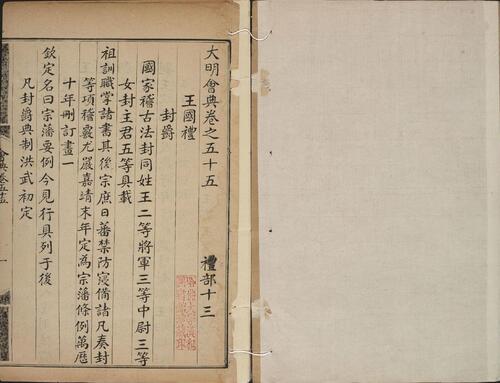 大明會典卷之五十五
禮部十三
王國禮
封爵
國家稽古法封同姓王二等將軍三等中尉三等
女封主君五等具載
祖訓職掌諸書其後宗庶日蕃禁防寖備諸凡奏封
等項稽覈尤嚴嘉靖末年定為宗藩條例萬曆
十年刪訂畫一
欽定名曰宗藩要例今見行具列于後
凡封爵典制洪武初定